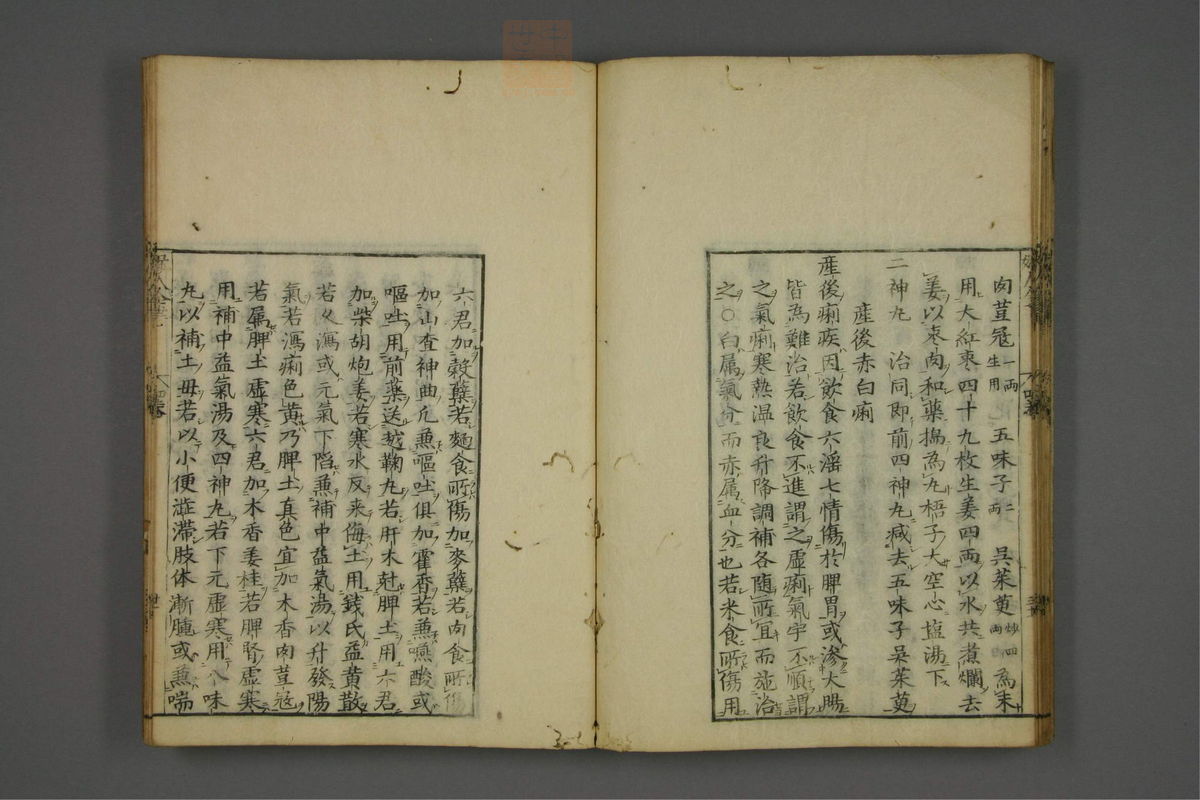 肉荳蔲一両生用　五味子二両　呉茱萸炒四両為末
用大紅棗四十九枚生姜四両以水共煮爛去
姜以棗肉和藥搗為丸梧子大空心塩湯下
二神丸　治同即前四神丸减去五味子呉茱萸
産後赤白痢
産後痢疾因飲食六淫七情傷於脾胃或滲大腸
皆為難治若飲食不進謂之虚痢氣宇不順謂
之氣痢寒熱温良升降調補各随所宜而施治
之○白属氣分而赤属血分也若米食所傷用
六君加穀糵若麵食所傷加麥糵若肉食所傷
加山査神曲凢兼嘔吐俱加霍香若兼嚥酸或
嘔吐用前藥送越鞠丸若肝木尅脾土用六君
加柴胡炮姜若寒水反来侮土用銭氏益黄散
若久瀉或元氣下陷兼補中益氣湯以升發陽
氣若瀉痢色黄乃脾土真色宜加木香肉荳蔲
若属脾土虚寒六君加木香姜桂若脾腎虚寒
用補中益氣湯及四神丸若下元虚寒用八味
丸以補土毋若以小便澁滞肢体漸腫或兼喘